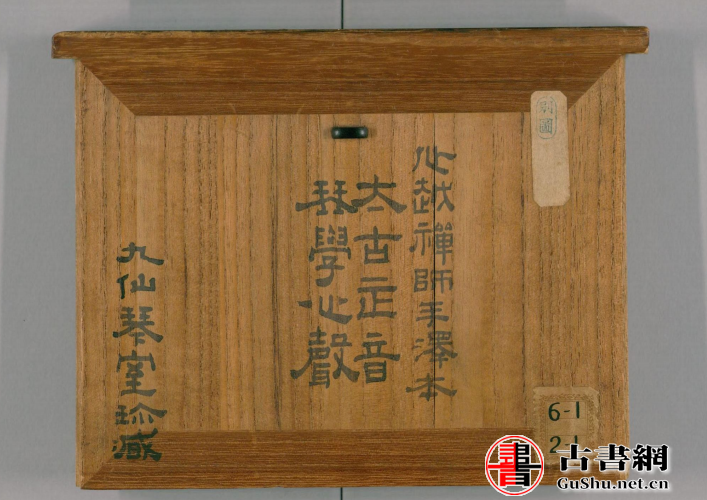 別國
心越禪師手澤本
太古正音
琴學心聲
九仙琴室珍藏
6-1
2-1
古書網
GuShu.net.cn